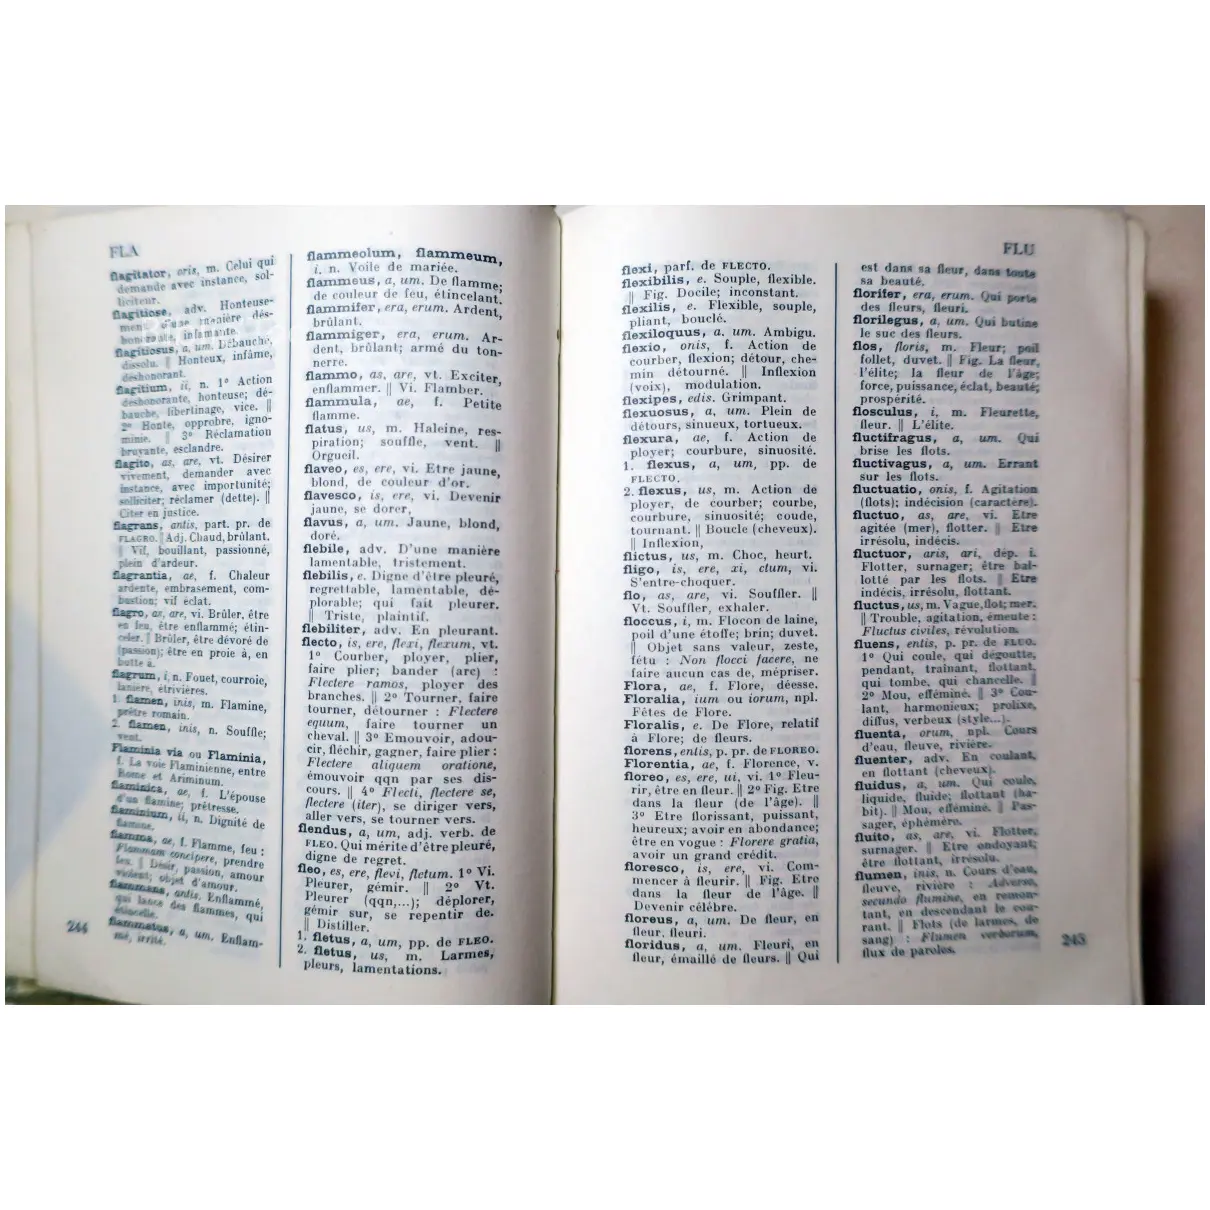 FLA
flagitator, oris, m. Celui qui
demande avec instance, sol-
liciteur.
flagitiose, adv. Honteuse-
ment d'une manière dés-
honorante, infamante.
flagitiosus, a, um. Débauché,
dissolu. || Honteux, infâme,
déshonorant.
flagitium, ii, n. 1º Action
deshonorante, honteuse; dé-
bauche, libertinage, vice. ||
2º Honte, opprobre, igno-
minie. || 3º Réclamation
bruyante, esclandre.
flagito, as, are, vt. Désirer
vivement, demander avec
instance, avec importunité;
solliciter; réclamer (dette). ||
Citer en justice.
flagrans, antis, part. pr. de
FLAGRO. || Adj. Chaud, brûlant.
|| Vif, bouillant, passionné,
plein d'ardeur.
flagrantia, ae, f. Chaleur
ardente, embrasement, com-
bustion; vif éclat.
flagro, as, are, vi. Brûler, être
en feu, être enflammé; étin-
celer. || Brûler, être dévoré de
(passion); être en proie à, en
butte à.
flagrum, i, n. Fouet, courroie,
lanière, étrivières.
1. flamen, inis, m. Flamine,
prêtre romain.
2. flamen, inis, n. Souffle;
vent.
Flaminia via ou Flaminia,
f. La voie Flaminienne, entre
Rome et Ariminum.
flaminica, ae, f. L'épouse
d'un flamine; prêtresse.
flaminium, ii, n. Dignité de
flamine.
flamma, ae, f. Flamme, feu :
Flammam concipere, prendre
feu. || Désir, passion, amour
violent; objet d'amour.
flammans, antis. Enflammé,
qui lance des flammes, qui
étincelle.
flammatus, a, um, Enflam-
mé, irrité.
244
flammeolum, flammeum,
i, n. Voile de mariée.
flammeus, a, um. De flamme;
de couleur de feu, étincelant.
flammifer, era, erum. Ardent,
brûlant.
flammiger, era, erum. Ar-
dent, brûlant; armé du ton-
nerre.
flammo, as, are, vt. Exciter,
enflammer. || Vi. Flamber.
flammula, ae, f. Petite
flamme.
flatus, us, m. Haleine, res-
piration; souffle, vent. ||
Orgueil.
flaveo, es, ere, vi. Etre jaune,
blond, de couleur d'or.
flavesco, is, ere, vi. Devenir
jaune, se dorer,
flavus, a, um. Jaune, blond,
doré.
flebile, adv. D'une manière
lamentable, tristement.
flebilis, e. Digne d'être pleuré,
regrettable, lamentable, dé-
plorable; qui fait pleurer.
|| Triste, plaintif.
flebiliter, adv. En pleurant.
flecto, is, ere, flexi, flexum, vt.
1º Courber, ployer, plier,
faire plier; bander (arc) :
Flectere ramos, ployer des
branches. || 2º Tourner, faire
tourner, détourner : Flectere
equum, faire tourner un
cheval. || 3º Emouvoir, adou-
cir, fléchir, gagner, faire plier :
Flectere aliquem oratione,
émouvoir qqn par ses dis-
cours. || 4º Flecti, flectere se,
flectere (iter), se diriger vers,
aller vers, se tourner vers.
flendus, a, um, adj. verb. de
FLEO. Qui mérite d'être pleuré,
digne de regret.
fleo, es, ere, flevi, fletum. 1º Vi.
Pleurer, gémir. || 2º Vt.
Pleurer (qqn,...); déplorer,
gémir sur, se repentir de.
|| Distiller.
1. fletus, a, um, pp. de FLEO.
2. fletus, us, m. Larmes,
pleurs, lamentations.
FLU
flexi, parf. de FLECTO.
flexibilis, e. Souple, flexible.
|| Fig. Docile; inconstant.
flexilis, e. Flexible, souple,
pliant, bouclé.
flexiloquus, a. um. Ambigu.
flexio, onis, f. Action de
courber, flexion; détour, che-
min détourné. || Inflexion
(voix), modulation.
flexipes, edis. Grimpant.
flexuosus, a, um. Plein de
détours, sinueux, tortueux.
flexura, ae, f. Action de
ployer; courbure, sinuosité.
1. flexus, a, um, pp. de
FLECTO.
2. flexus, us, m. Action de
ployer, de courber; courbe,
courbure, sinuosité; coude,
tournant. || Boucle (cheveux).
|| Inflexion,
flictus, us, m. Choc, heurt.
fligo, is, ere, xi, ctum, vi.
S'entre-choquer.
flo, as, are, vi. Souffler. ||
Vt. Souffler, exhaler.
floccus, i, m. Flocon de laine,
poil d'une étoffe; brin; duvet.
|| Objet sans valeur, zeste,
fétu : Non flocci facere, ne
faire aucun cas de, mépriser.
Flora, ae, f. Flore, déesse.
Floralia, ium ou iorum, npl.
Fêtes de Flore.
Floralis, e. De Flore, relatif
à Flore; de fleurs.
florens, entis, p. pr. de FLOREO.
Florentia, ae, f. Florence, v.
floreo, es, ere, ui, vi. 1º Fleu-
rir, être en fleur. || 2º Fig. Etre
dans la fleur (de l'âge). ||
3º Etre florissant, puissant,
heureux; avoir en abondance;
être en vogue : Florere gratia,
avoir un grand crédit.
floresco, is, ere, vi. Com-
mencer à fleurir. || Fig. Etre
dans la fleur de l'âge. ||
Devenir célèbre.
floreus, a, um. De fleur, en
fleur, fleuri.
floridus, a, um. Fleuri, en
fleur, émaillé de fleurs. || Qui
est dans sa fleur, dans toute
sa beauté.
florifer, era, erum. Qui porte
des fleurs, fleuri.
florilegus, a, um. Qui butine
le suc des fleurs.
flos, floris, m. Fleur; poil
follet, duvet. || Fig. La fleur,
l'élite; la fleur de l'âge;
force, puissance, éclat, beauté;
prospérité.
flosculus, i, m. Fleurette,
fleur. || L'élite.
fluctifragus, a, um. Qui
brise les flots.
fluctivagus, a, um. Errant
sur les flots.
fluctuatio, onis, f. Agitation
(flots); indécision (caractère).
fluctuo, as, are, vi. Etre
agitée (mer), flotter. || Etre
irrésolu, indécis.
fluctuor, aris, ari, dép. i.
Flotter, surnager; être bal-
lotté par les flots. || Etre
indécis, irrésolu, flottant.
fluctus, us, m. Vague, flot; mer.
|| Trouble, agitation, émeute :
Fluctus civiles, révolution.
fluens, entis, p. pr. de FLUO.
1º Qui coule, qui dégoutte,
pendant, traînant, flottant.
qui tombe, qui chancelle. ||
2º Mou, efféminé. || 3º Cou-
lant, harmonieux; prolixe,
diffus, verbeux (style...).
fluenta, orum, npl. Cours
d'eau, fleuve, rivière.
fluenter, adv. En coulant,
en flottant (cheveux).
fluidus, a, um. Qui coule,
liquide, fluide; flottant (ha-
bit). || Mou, efféminé. || Pas-
sager, éphémère.
fluito, as, are, vi. Flotter,
surnager. || Etre ondoyant;
être flottant, irrésolu.
flumen, inis, n. Cours d'eau,
fleuve, rivière : Adverso,
secundo flumine, en remon-
tant, en descendant le cou-
rant. || Flots (de larmes, de
sang) : Flumen verborum,
flux de paroles.
245